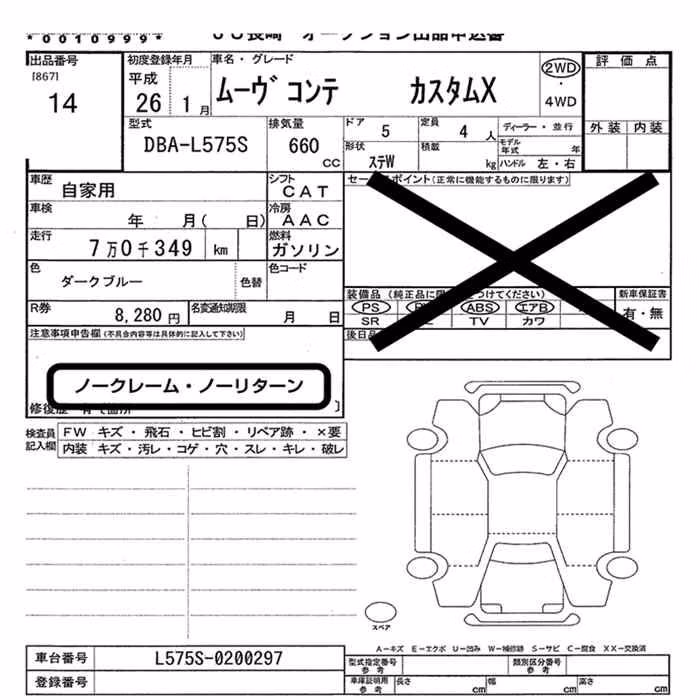 *0010999*
JU長崎 オークション出品申込書
出品番号 初度登録年月 車名・グレード 2WD 評価点
[867] 平成 ムーヴ コンテ カスタムX ・
14 26 1月 4WD
型式 排気量 ドア 5 定員 4人 ディーラー・並行 外装 内装
DBA-L575S 660 CC 形状 ステW 積載 kg モデル年式 年
ハンドル 左・右
車歴 自家用 シフト CAT セールスポイント(正常に機能するものに限ります)
車検 年 月( 日) 冷房 AAC
走行 7万0千349 km 燃料 ガソリン
色 ダークブルー 色替 色コード
装備品 (純正品に限 つけてください) 新車保証書
R券 8,280円 名変通知期限 月 日 PS ABS エアB 有・無
SR TV カワ
注意事項申告欄(不具合内容等は具体的に記入して下さい) 後日
ノークレーム・ノーリターン
修復歴 有 箇所 〕
検査員記入欄 FW キズ・飛石・ヒビ割・リペア跡・×要
内装 キズ・汚レ・コゲ・穴・スレ・キレ・破レ
スペア
A-キズ E-エクボ U-凹み W-補修跡 S-サビ C-腐食 XX-交換済
車台番号 L575S-0200297 型式指定番号参考 類別区分番号参考
登録番号 車庫証明用参考 長さ cm 幅 cm 高さ cm